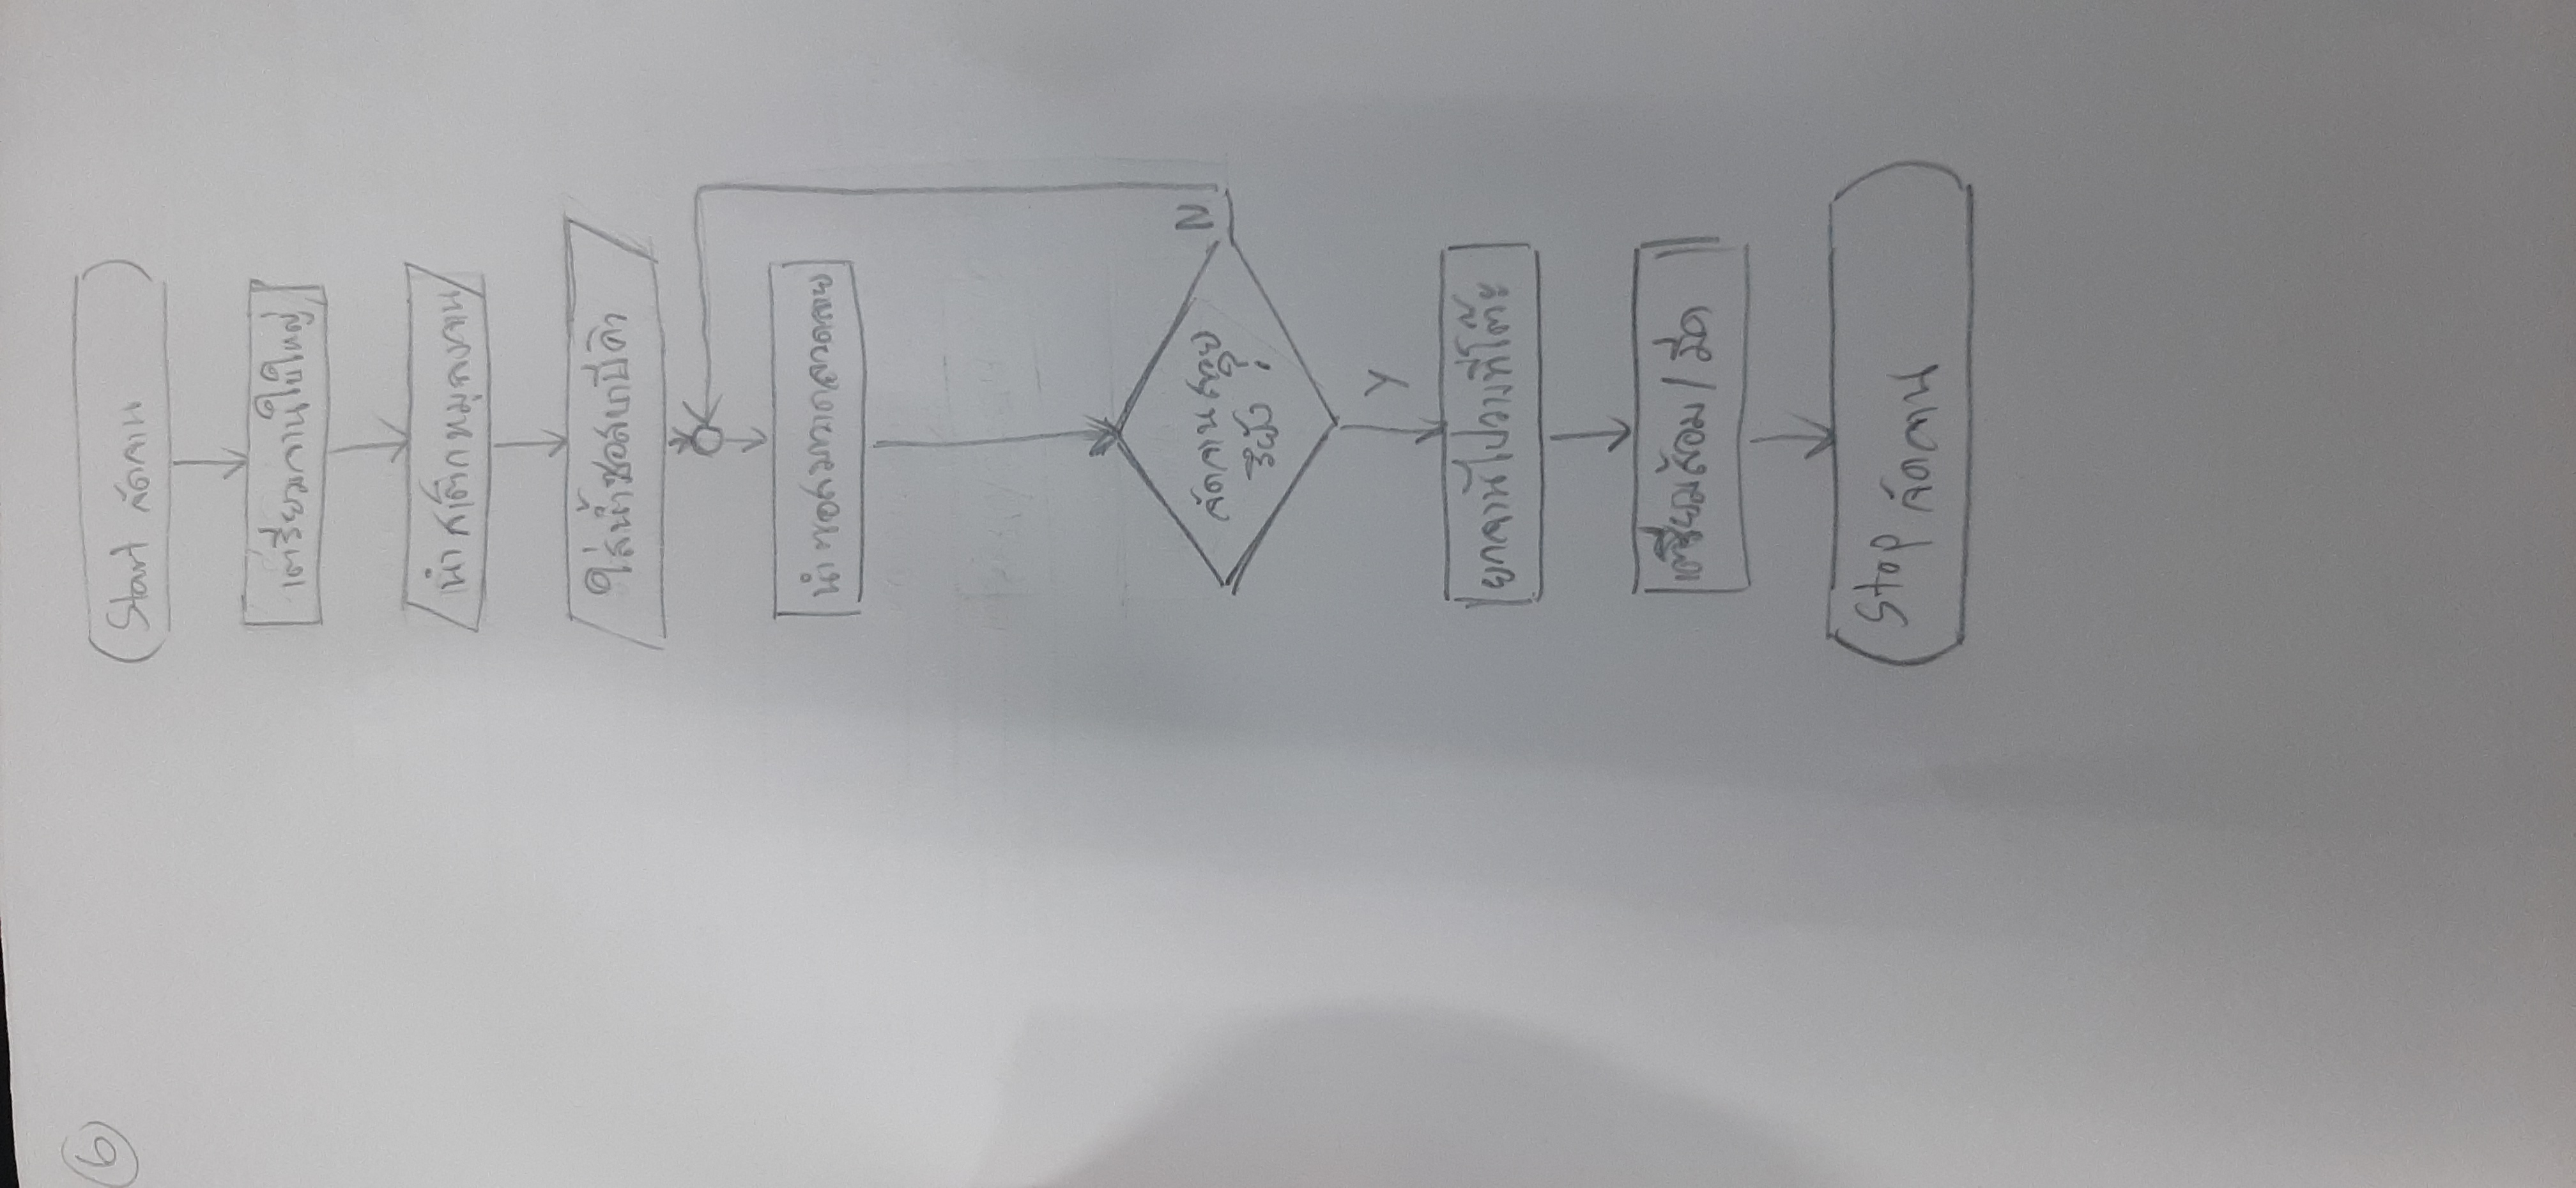 6
Start จัดจาน
เตรียมจานใบใหญ่
นำสเต็กหมูลงจาน
ใส่น้ำซอสบาบีคิว
นำซอสมาวาดลวดลาย
จัดจานสวย
รึยัง ?
N
Y
ยกจานไปวางที่โต๊ะ
เตรียมส้อม / มีด
Stop จัดจาน